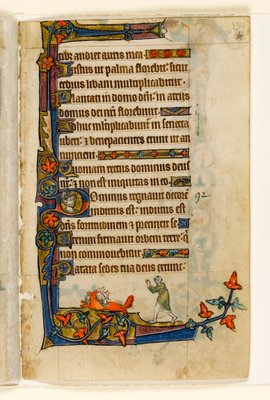 tibi audiet auris mea
Iustus ut palma florebit: sicut
cedrus libani multiplicabitur
Plantati in domo dn̄i: in atriis
domus dei nr̄i florebunt
Adhuc multiplicabunt̄ in senecta
uberi: & bene pacientes erunt ut an
nuncient
Quoniam rectus dominus deus
nr̄: & non est iniquitas in eo
Dominus regnavit decorē 92
indutus est: indutus est
dn̄s fortitudinem & precinxit se
Etenim firmavit orbem terre: q̄
non commovebitur
Parata sedes tua deus ex tunc: